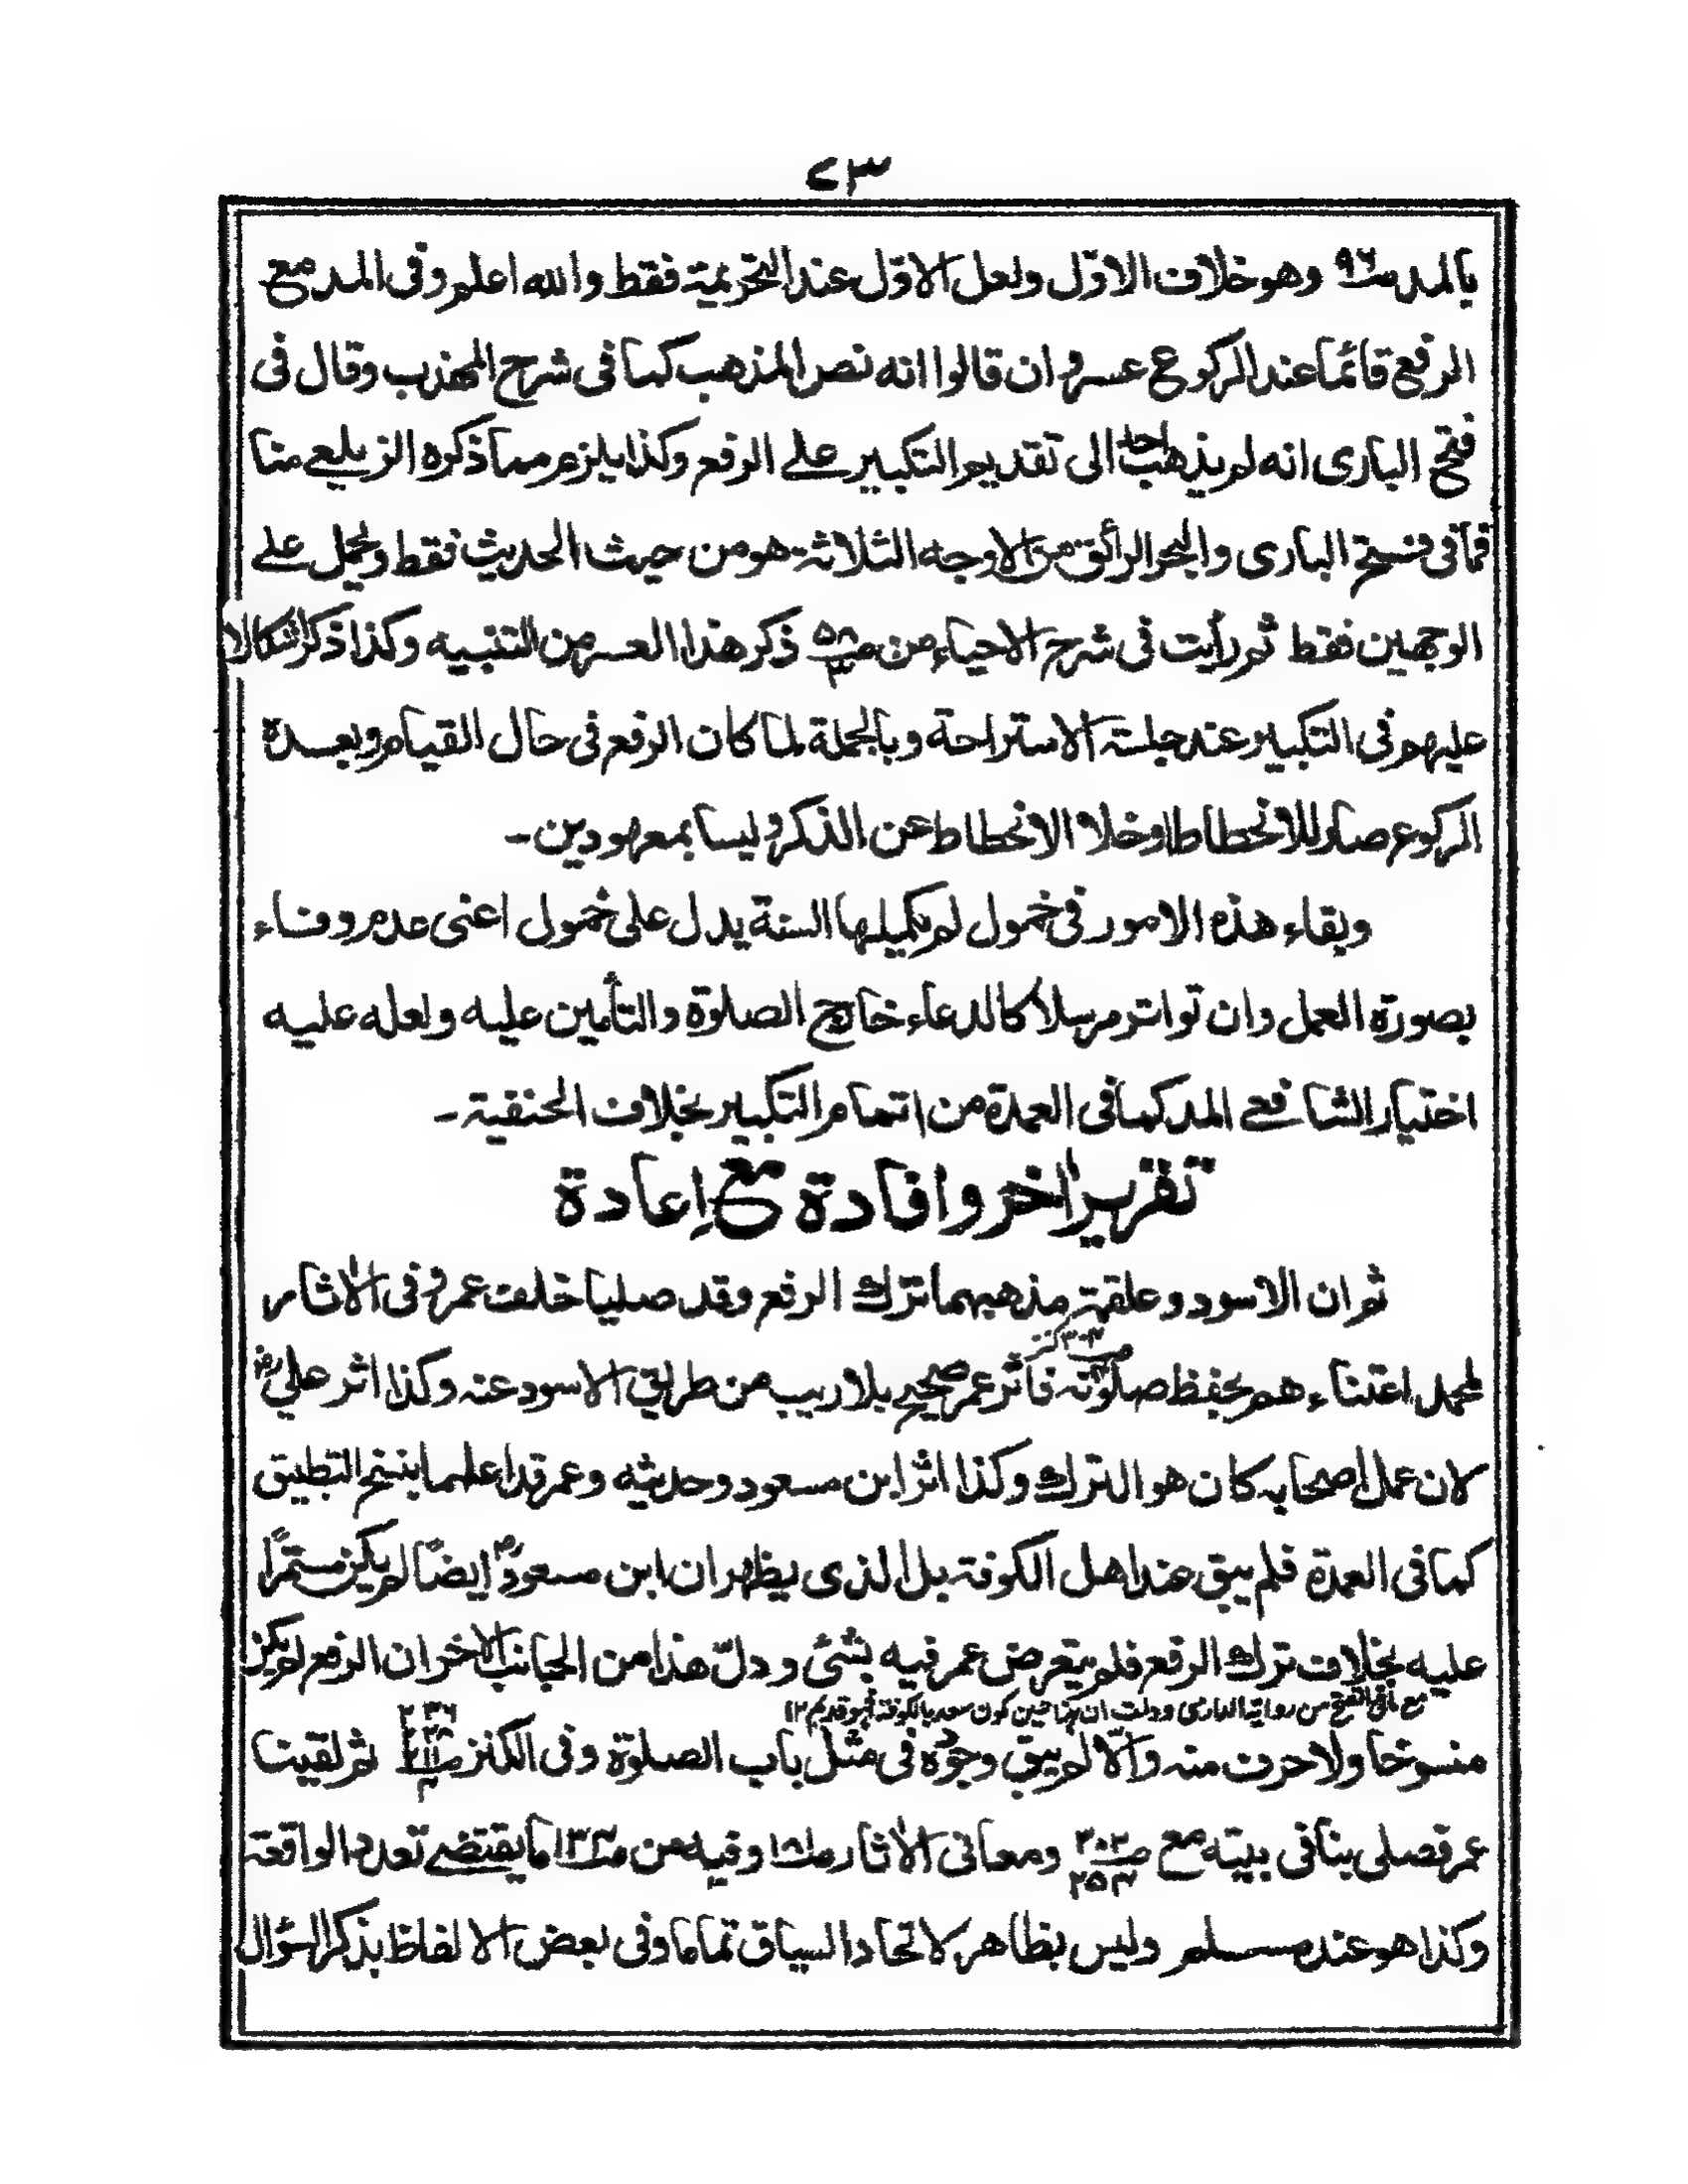 ٧٣
بالمد ص٩٦ وهو خلاف الاوّل ولعل الاوّل عند التحريمة فقط والله اعلم وفى المد مع
الرفع قائما عند الركوع عسر وان قالوا انه نص المذهب كما فى شرح المهذب وقال فى
فتح البارى انه لم يذهب احد الى تقديم التكبير على الرفع وكذا يلزم مما ذكره الزيلعى منا
فما فى فتح البارى والبحر الرائق من الاوجه الثلاثة هو من حيث الحديث فقط ويحمل على
الوجهين فقط ثم رأيت فى شرح الاحياء من ص٥٨ ٣ ذكر هذا العسر من التنبيه وكذا ذكر اشكالا
عليهم فى التكبير عند جلسة الاستراحة وبالجملة لما كان الرفع فى حال القيام وبعده
الركوع صار للانحطاط او خلا الانحطاط عن الذكر وليسا بمعهودين ـ
وبقاء هذه الامور فى خمول لم يكملها السنة يدل على خمول اعنى عدم وفاء
بصورة العمل وان تواتر مرسلا كالدعاء خارج الصلوة والتأمين عليه ولعله عليه
اختيار الشافعى المد كما فى العمدة من اتمام التكبير بخلاف الحنفية ـ
تقرير اٰخر وافادة مع اِعادة
ثم ان الاسود وعلقمة مذهبهما ترك الرفع وقد صليا خلف عمر وفى الاٰثار
ص٣٠٢ كنز
لمحمد اعتناءهم بحفظ صلوته فاثر عمر صحيح بلاريب من طريق الاسود عنه وكذا اثر علي رض
لان عمل اصحابه كان هو الترك وكذا اثر ابن مسعود وحديثه وعمر قد اعلما بنسخ التطبيق
كما فى العمدة فلم يبق عند اهل الكوفة بل الذى يظهر ان ابن مسعود رض ايضًا لم يكن مستمرًا
عليه بخلاف ترك الرفع فلم يتعرض عمر فيه بشئ ودلّ هذا من الجانب الاٰخر ان الرفع لم يكن
مع ما فى الفتح من رواية الدارمى ودلت ان هذا حين كون سعد بالكوفة فهو قديم ١٢
منسوخا ولا حرف منه والّا لم يبق وجوده فى مثل باب الصلوة وفى الكنز ثم لقينا
عمر فصلى بنا فى بيته مع ص٣٠٢ ٢٥٣ ومعانى الاٰثار ص١٨١ وفيه من ص١٣٣ ما يقتضى تعدد الواقعة
وكذا هو عند مسلم وليس بظاهر لاتحاد السياق تماما وفى بعض الالفاظ بذكر السؤال